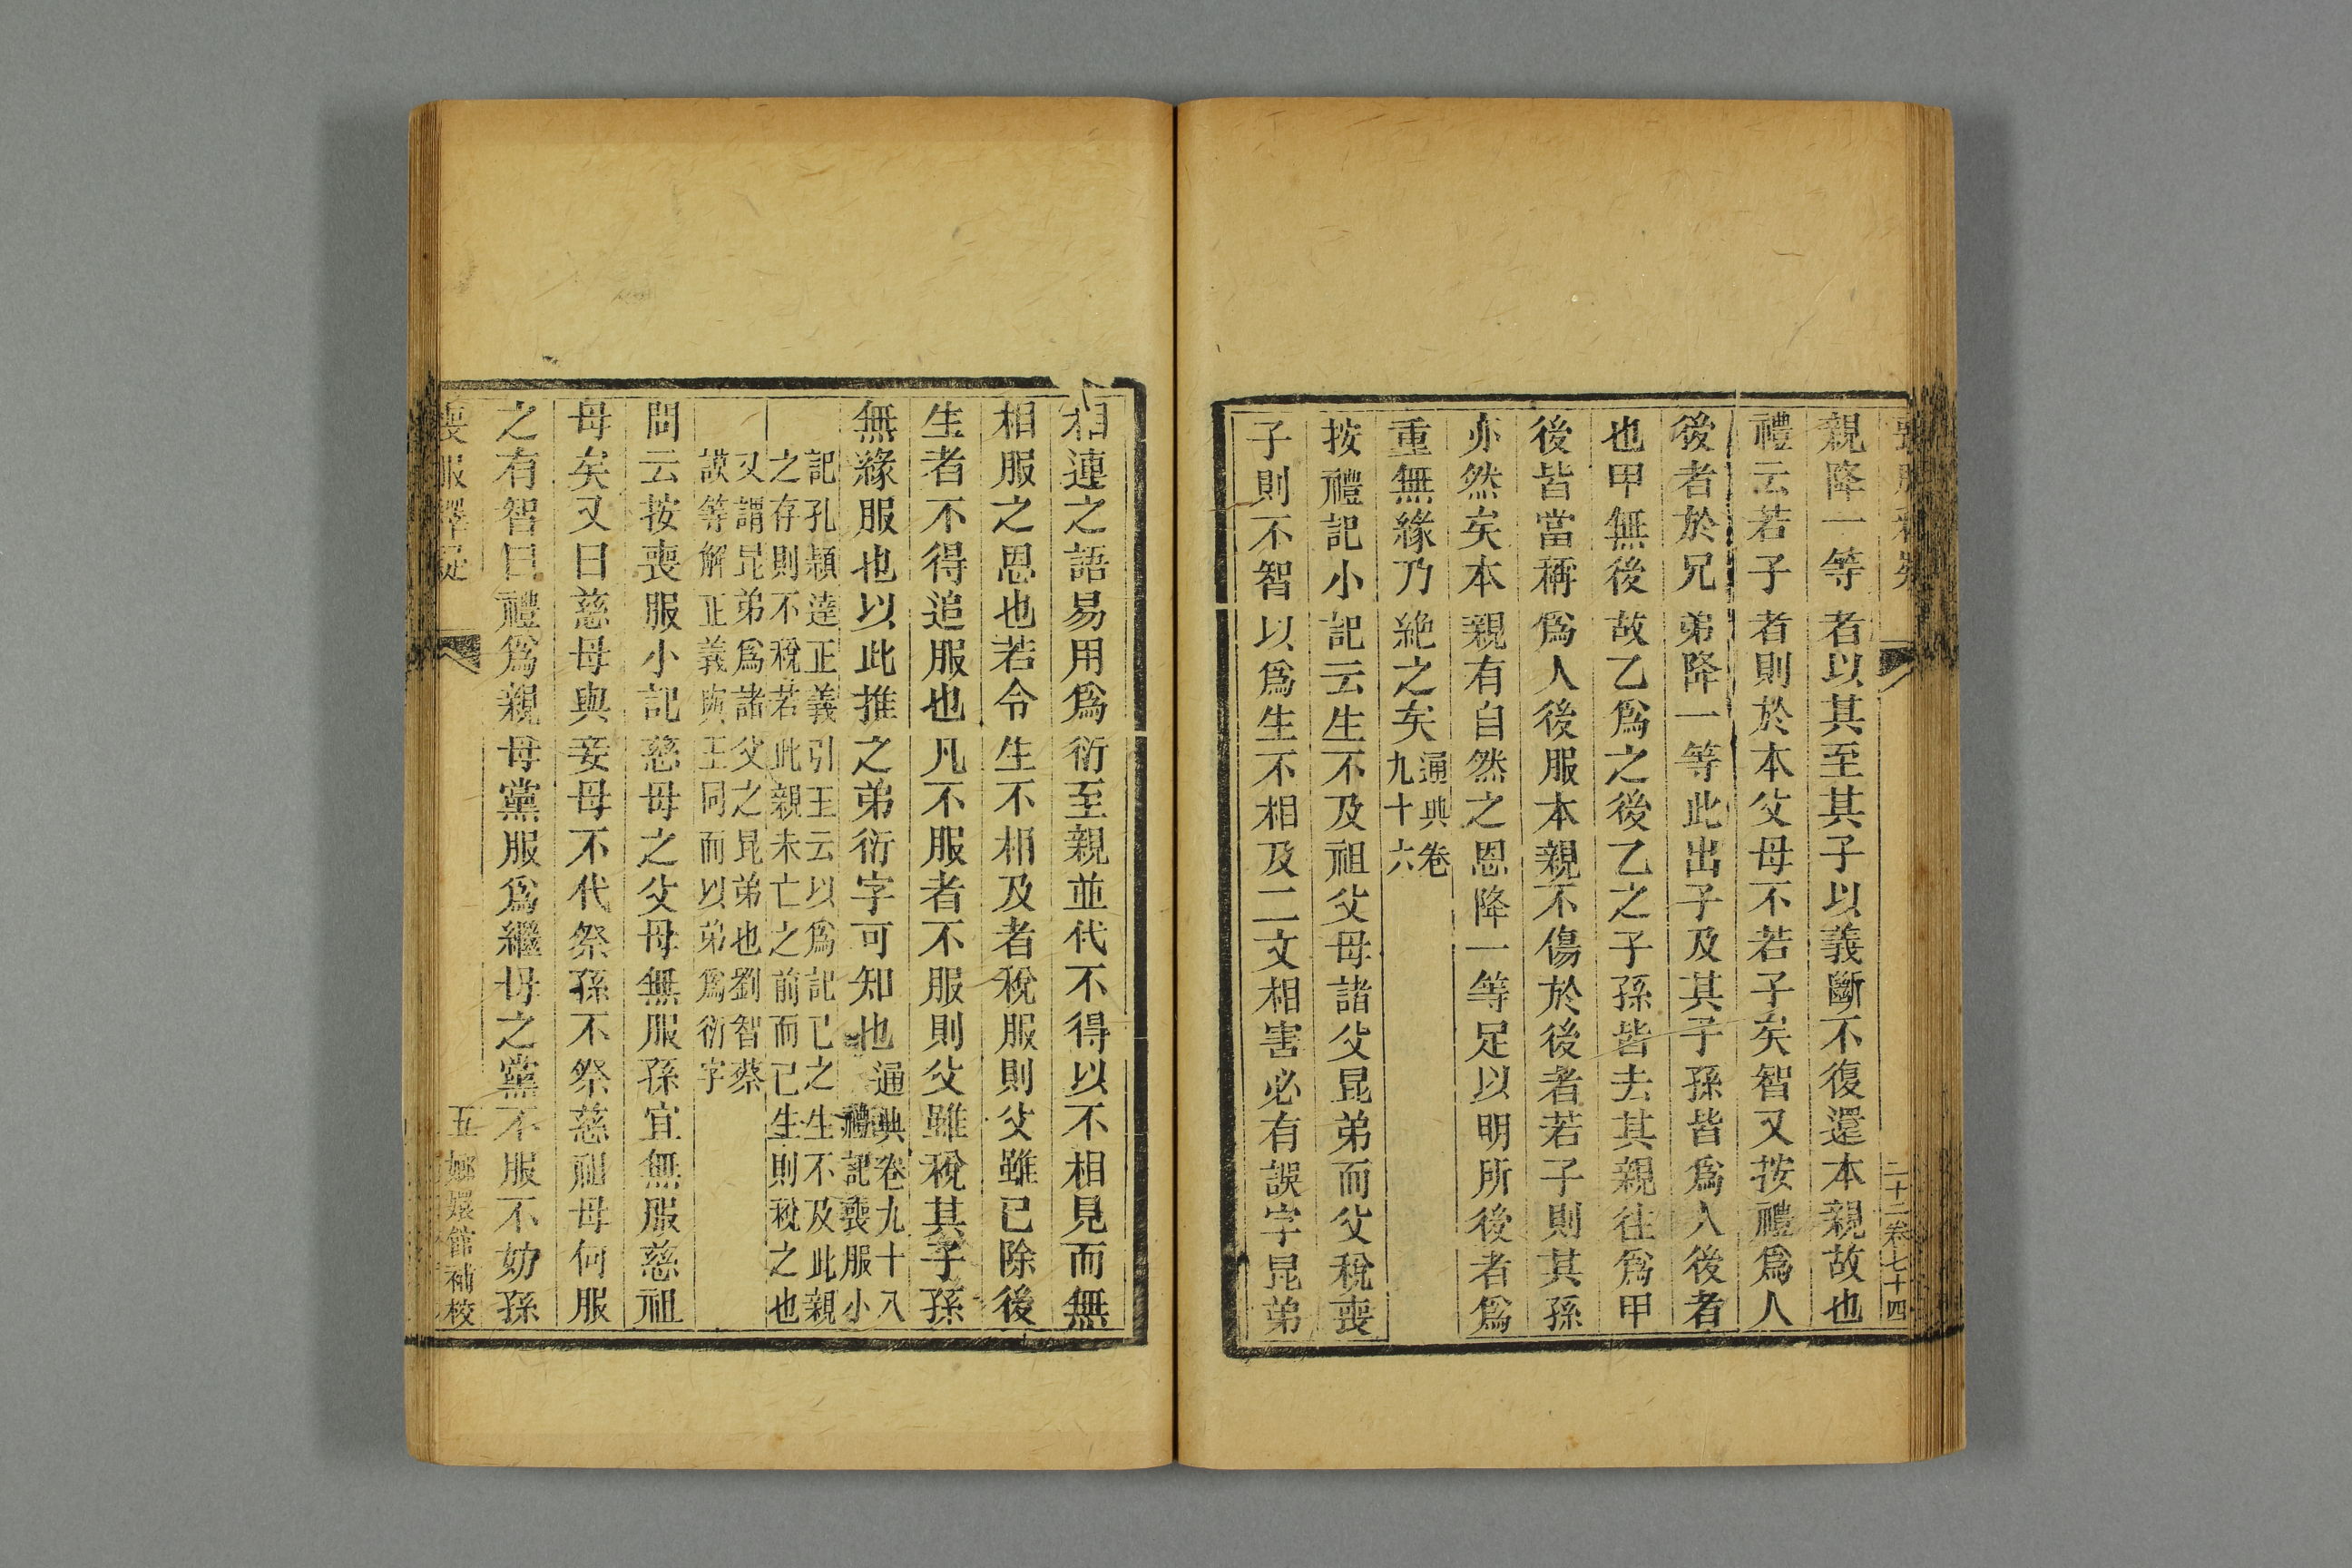 親降一等者以其至其子以義斷不復還本親故也
禮云若子者則於本父母不若子矣智又按禮爲人
後者於兄弟降一等此出子及其子孫皆爲人後者
也甲無後故乙爲之後乙之子孫皆去其親往爲甲
後皆當稱爲人後服本親不傷於後者若子則其孫
亦然矣本親有自然之恩降一等足以明所後者爲
重無緣乃絶之矣通典卷
九十六
按禮記小記云生不及祖父母諸父昆弟而父稅喪
子則不智以爲生不相及二文相害必有誤字昆弟
二十二卷七十四
相連之語易用爲衍至親並代不得以不相見而無
相服之恩也若令生不相及者稅服則父雖已除後
生者不得追服也凡不服者不服則父雖稅其子孫
無緣服也以此推之弟衍字可知也通典卷九十八
禮記喪服小
記孔穎達正義引王云以爲記已之生不及此親
之存則不稅若此親未亡之前而已生則稅之也
又謂昆弟爲諸父之昆弟也劉智蔡
謨等解正義與王同而以弟爲衍字
問云按喪服小記慈母之父母無服孫宜無服慈祖
母矣又曰慈母與妾母不代祭孫不祭慈祖母何服
之有智曰禮爲親母黨服爲繼母之黨不服不妨孫
喪服釋疑
五
嫏嬛館補校